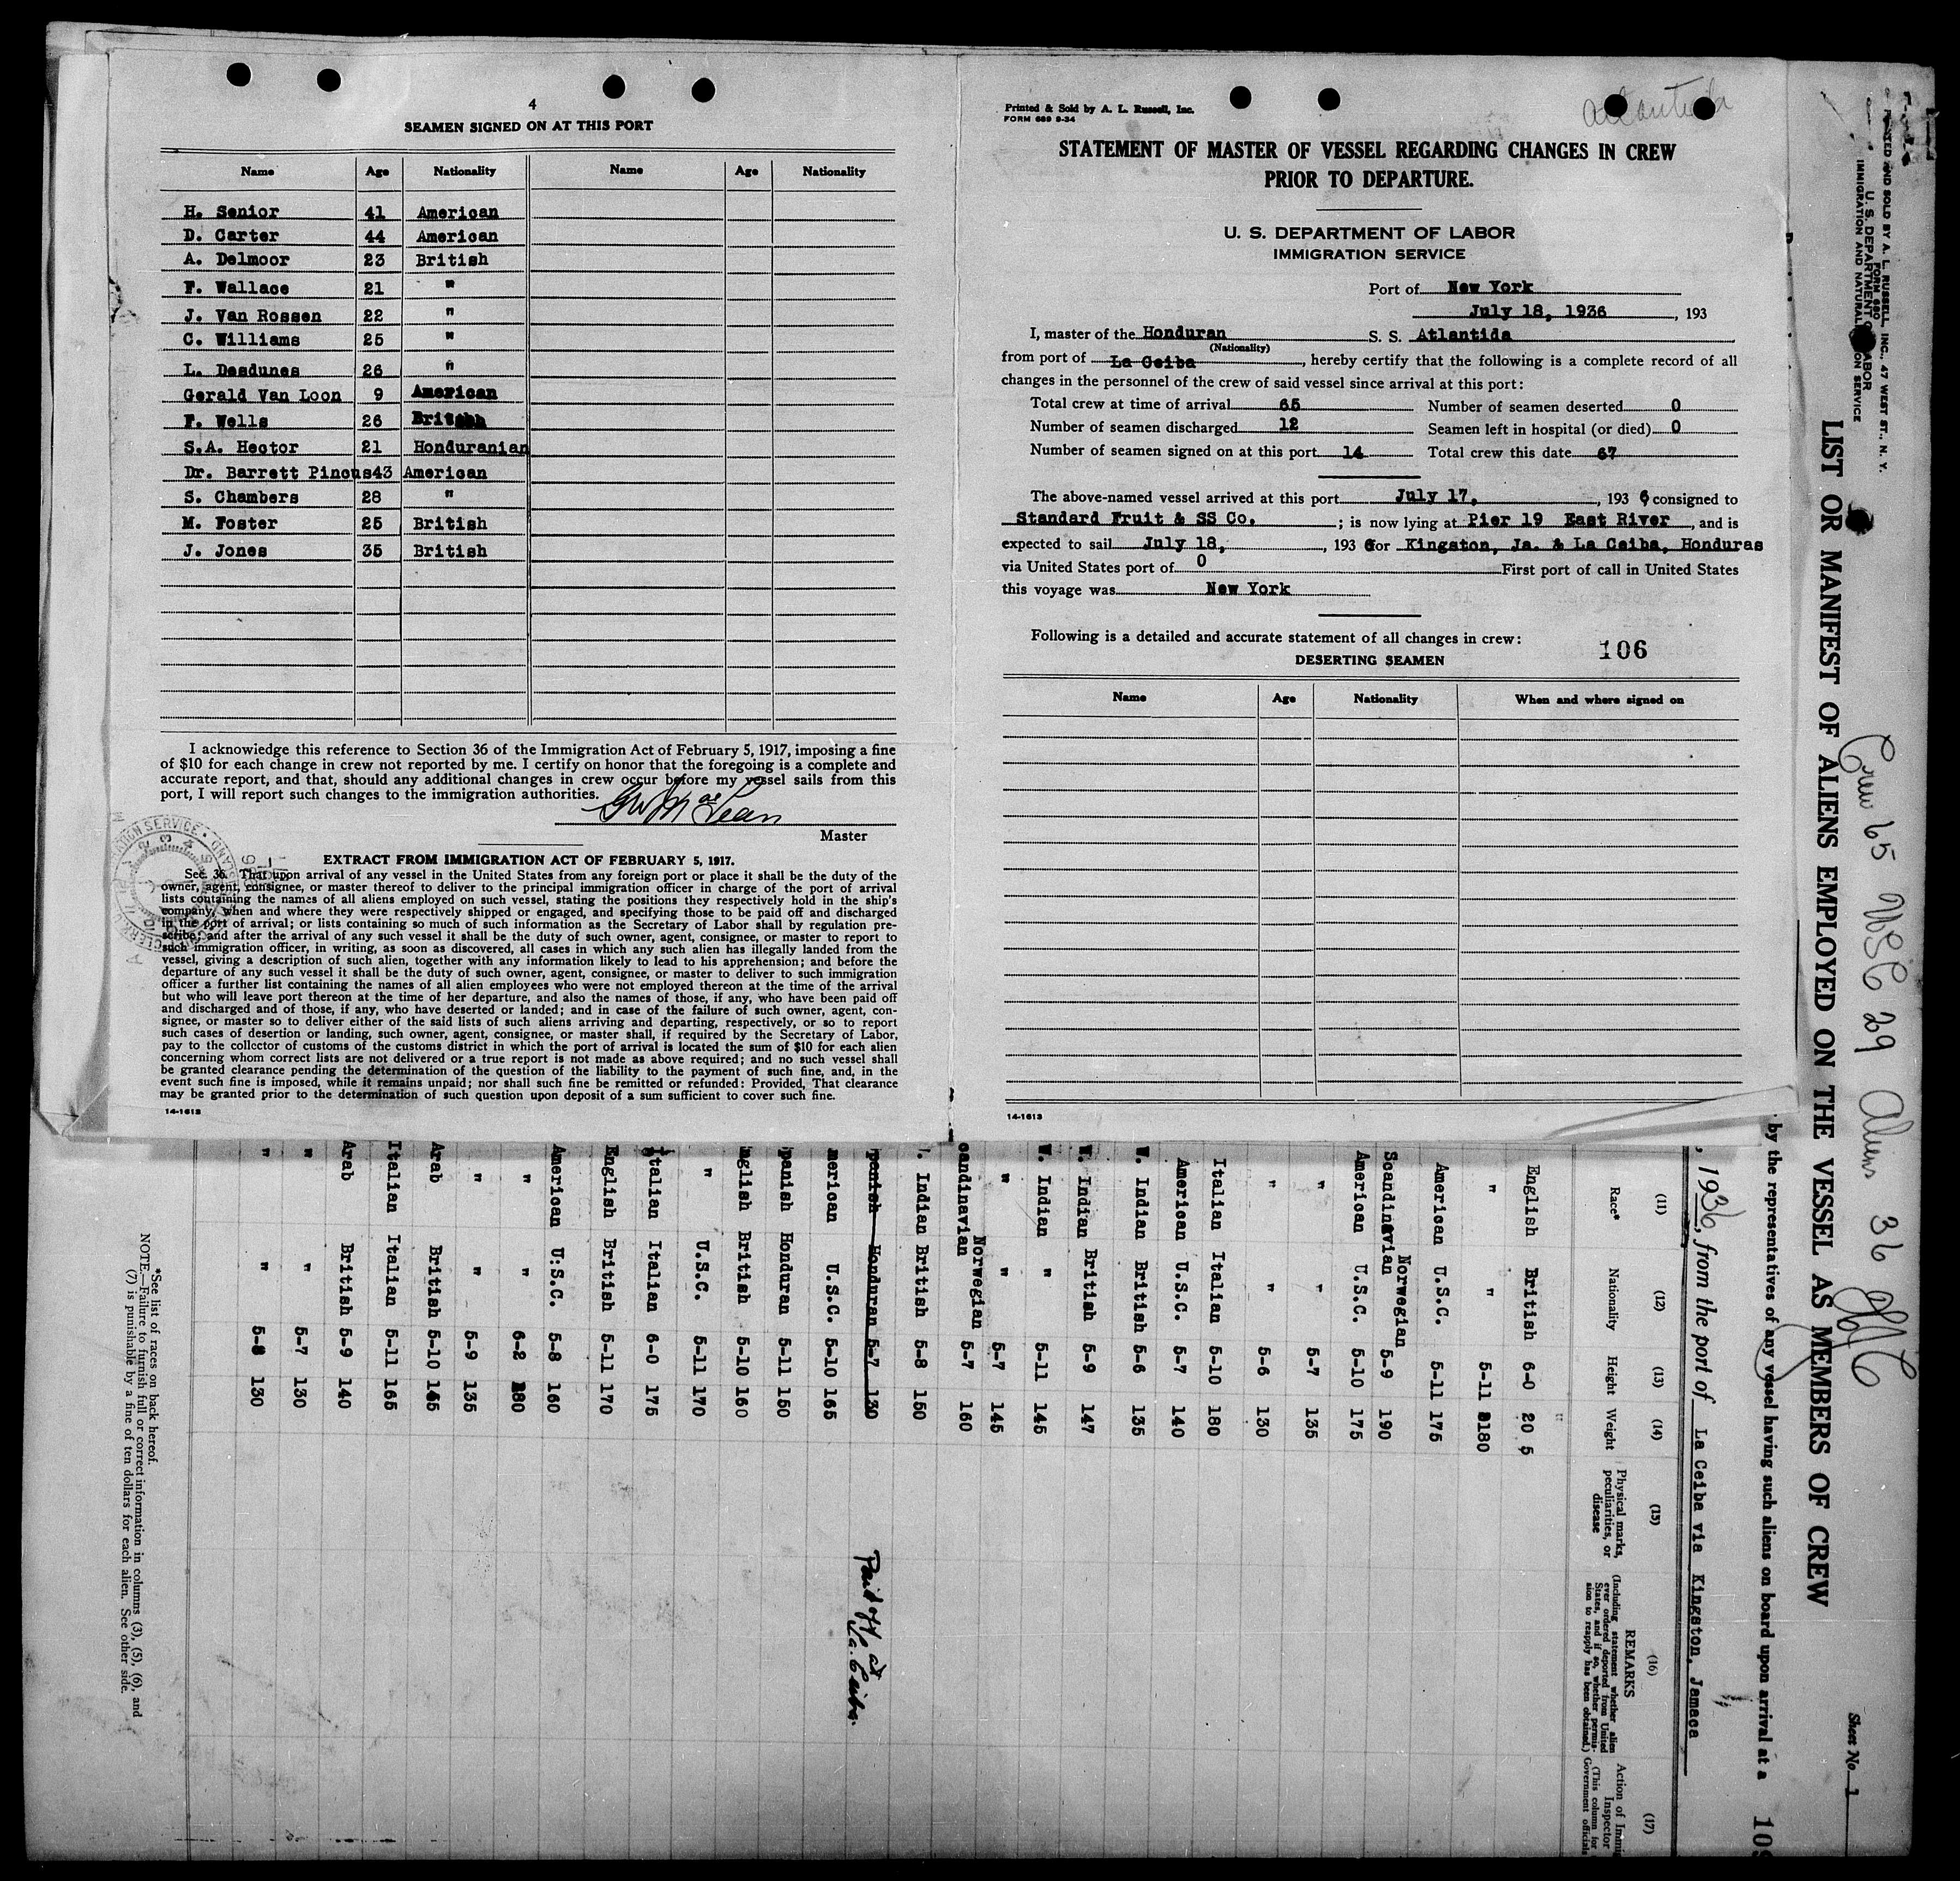 4
SEAMEN SIGNED ON AT THIS PORT
Name Age Nationality Name Age Nationality
H. Senior 41 American
D. Carter 44 American
A. Delmoor 23 British
F. Wallace 21 "
J. Van Rossen 22 "
C. Williams 25 "
L. Desdunes 26 "
Gerald Van Loon 9 American
F. Wells 26 British
S.A. Hector 21 Honduranian
Dr. Barrett Pincus 43 American
S. Chambers 28 "
M. Foster 25 British
J. Jones 35 British
I acknowledge this reference to Section 36 of the Immigration Act of February 5, 1917, imposing a fine
of $10 for each change in crew not reported by me. I certify on honor that the foregoing is a complete and
accurate report, and that, should any additional changes in crew occur before my vessel sails from this
port, I will report such changes to the immigration authorities.
Master
EXTRACT FROM IMMIGRATION ACT OF FEBRUARY 5, 1917.
Sec. 36. That upon arrival of any vessel in the United States from any foreign port or place it shall be the duty of the
owner, agent, consignee, or master thereof to deliver to the principal immigration officer in charge of the port of arrival
lists containing the names of all aliens employed on such vessel, stating the positions they respectively hold in the ship's
company, when and where they were respectively shipped or engaged, and specifying those to be paid off and discharged
in the port of arrival; or lists containing so much of such information as the Secretary of Labor shall by regulation pre-
scribe; and after the arrival of any such vessel it shall be the duty of such owner, agent, consignee, or master to report to
such immigration officer, in writing, as soon as discovered, all cases in which any such alien has illegally landed from the
vessel, giving a description of such alien, together with any information likely to lead to his apprehension; and before the
departure of any such vessel it shall be the duty of such owner, agent, consignee, or master to deliver to such immigration
officer a further list containing the names of all alien employees who were not employed thereon at the time of the arrival
but who will leave port thereon at the time of her departure, and also the names of those, if any, who have been paid off
and discharged and of those, if any, who have deserted or landed; and in case of the failure of such owner, agent, con-
signee, or master so to deliver either of the said lists of such aliens arriving and departing, respectively, or so to report
such cases of desertion or landing, such owner, agent, consignee, or master shall, if required by the Secretary of Labor,
pay to the collector of customs of the customs district in which the port of arrival is located the sum of $10 for each alien
concerning whom correct lists are not delivered or a true report is not made as above required; and no such vessel shall
be granted clearance pending the determination of the question of the liability to the payment of such fine, and, in the
event such fine is imposed, while it remains unpaid; nor shall such fine be remitted or refunded: Provided, That clearance
may be granted prior to the determination of such question upon deposit of a sum sufficient to cover such fine.
14-1613
Printed & Sold by A. L. Russell, Inc.
FORM 689 9-34
Atlantida
STATEMENT OF MASTER OF VESSEL REGARDING CHANGES IN CREW
PRIOR TO DEPARTURE.
U. S. DEPARTMENT OF LABOR
IMMIGRATION SERVICE
Port of New York
July 18, 1936, 193
I, master of the Honduran S. S. Atlantida
(Nationality)
from port of La Ceiba, hereby certify that the following is a complete record of all
changes in the personnel of the crew of said vessel since arrival at this port:
Total crew at time of arrival 65 Number of seamen deserted 0
Number of seamen discharged 12 Seamen left in hospital (or died) 0
Number of seamen signed on at this port 14 Total crew this date 67
The above-named vessel arrived at this port July 17, , 193 6 consigned to
Standard Fruit & SS Co. ; is now lying at Pier 19 East River, and is
expected to sail July 18, , 193 6 for Kingston, Ja. & La Ceiba, Honduras
via United States port of 0 First port of call in United States
this voyage was New York
Following is a detailed and accurate statement of all changes in crew:
106
DESERTING SEAMEN
Name Age Nationality When and where signed on
14-1613
PRINTED AND SOLD BY A. L. RUSSELL, INC., 47 WEST ST., N. Y.
FORM 680
U. S. DEPARTMENT OF LABOR
IMMIGRATION AND NATURALIZATION SERVICE
Crew 65 USC 29 Aliens 36
Sheet No. 1
LIST OR MANIFEST OF ALIENS EMPLOYED ON THE VESSEL AS MEMBERS OF CREW
by the representatives of any vessel having such aliens on board upon arrival at a
, 1936, from the port of La Ceiba via Kingston, Jamaca
(11) (12) (13) (14) (15) (16) (17)
Race* Nationality Height Weight Physical marks, peculiarities, or disease
REMARKS
(Including statement whether alien
ever ordered deported from United
States, and if so, whether permis-
sion to reapply has been obtained.)
English British 6-0 205
" " 5-11 180
American U.S.C. 5-11 175
Scandinavian Norwegian 5-9 190
American U.S.C. 5-10 175
" " 5-7 135
" " 5-6 130
Italian Italian 5-10 180
American U.S.C. 5-7 140
W. Indian British 5-6 135
W. Indian British 5-9 147
W. Indian " 5-11 145
" " 5-7 145
candinavian Norwegian 5-7 160
. Indian British 5-8 150
panish Honduran 5-7 130 Paid off at La Ceiba.
merican U.S.C. 5-10 165
panish Honduran 5-11 150
nglish British 5-10 160
" U.S.C. 5-11 170
Italian Italian 6-0 175
English British 5-11 170
American U.S.C. 5-8 160
" " 6-2 180
" " 5-9 135
Arab British 5-10 145
Italian Italian 5-11 165
Arab British 5-9 140
" " 5-7 130
" " 5-8 130
*See list of races on back hereof.
NOTE.—Failure to furnish full or correct information in columns (3), (5), (6), and
(7) is punishable by a fine of ten dollars for each alien. See other side.